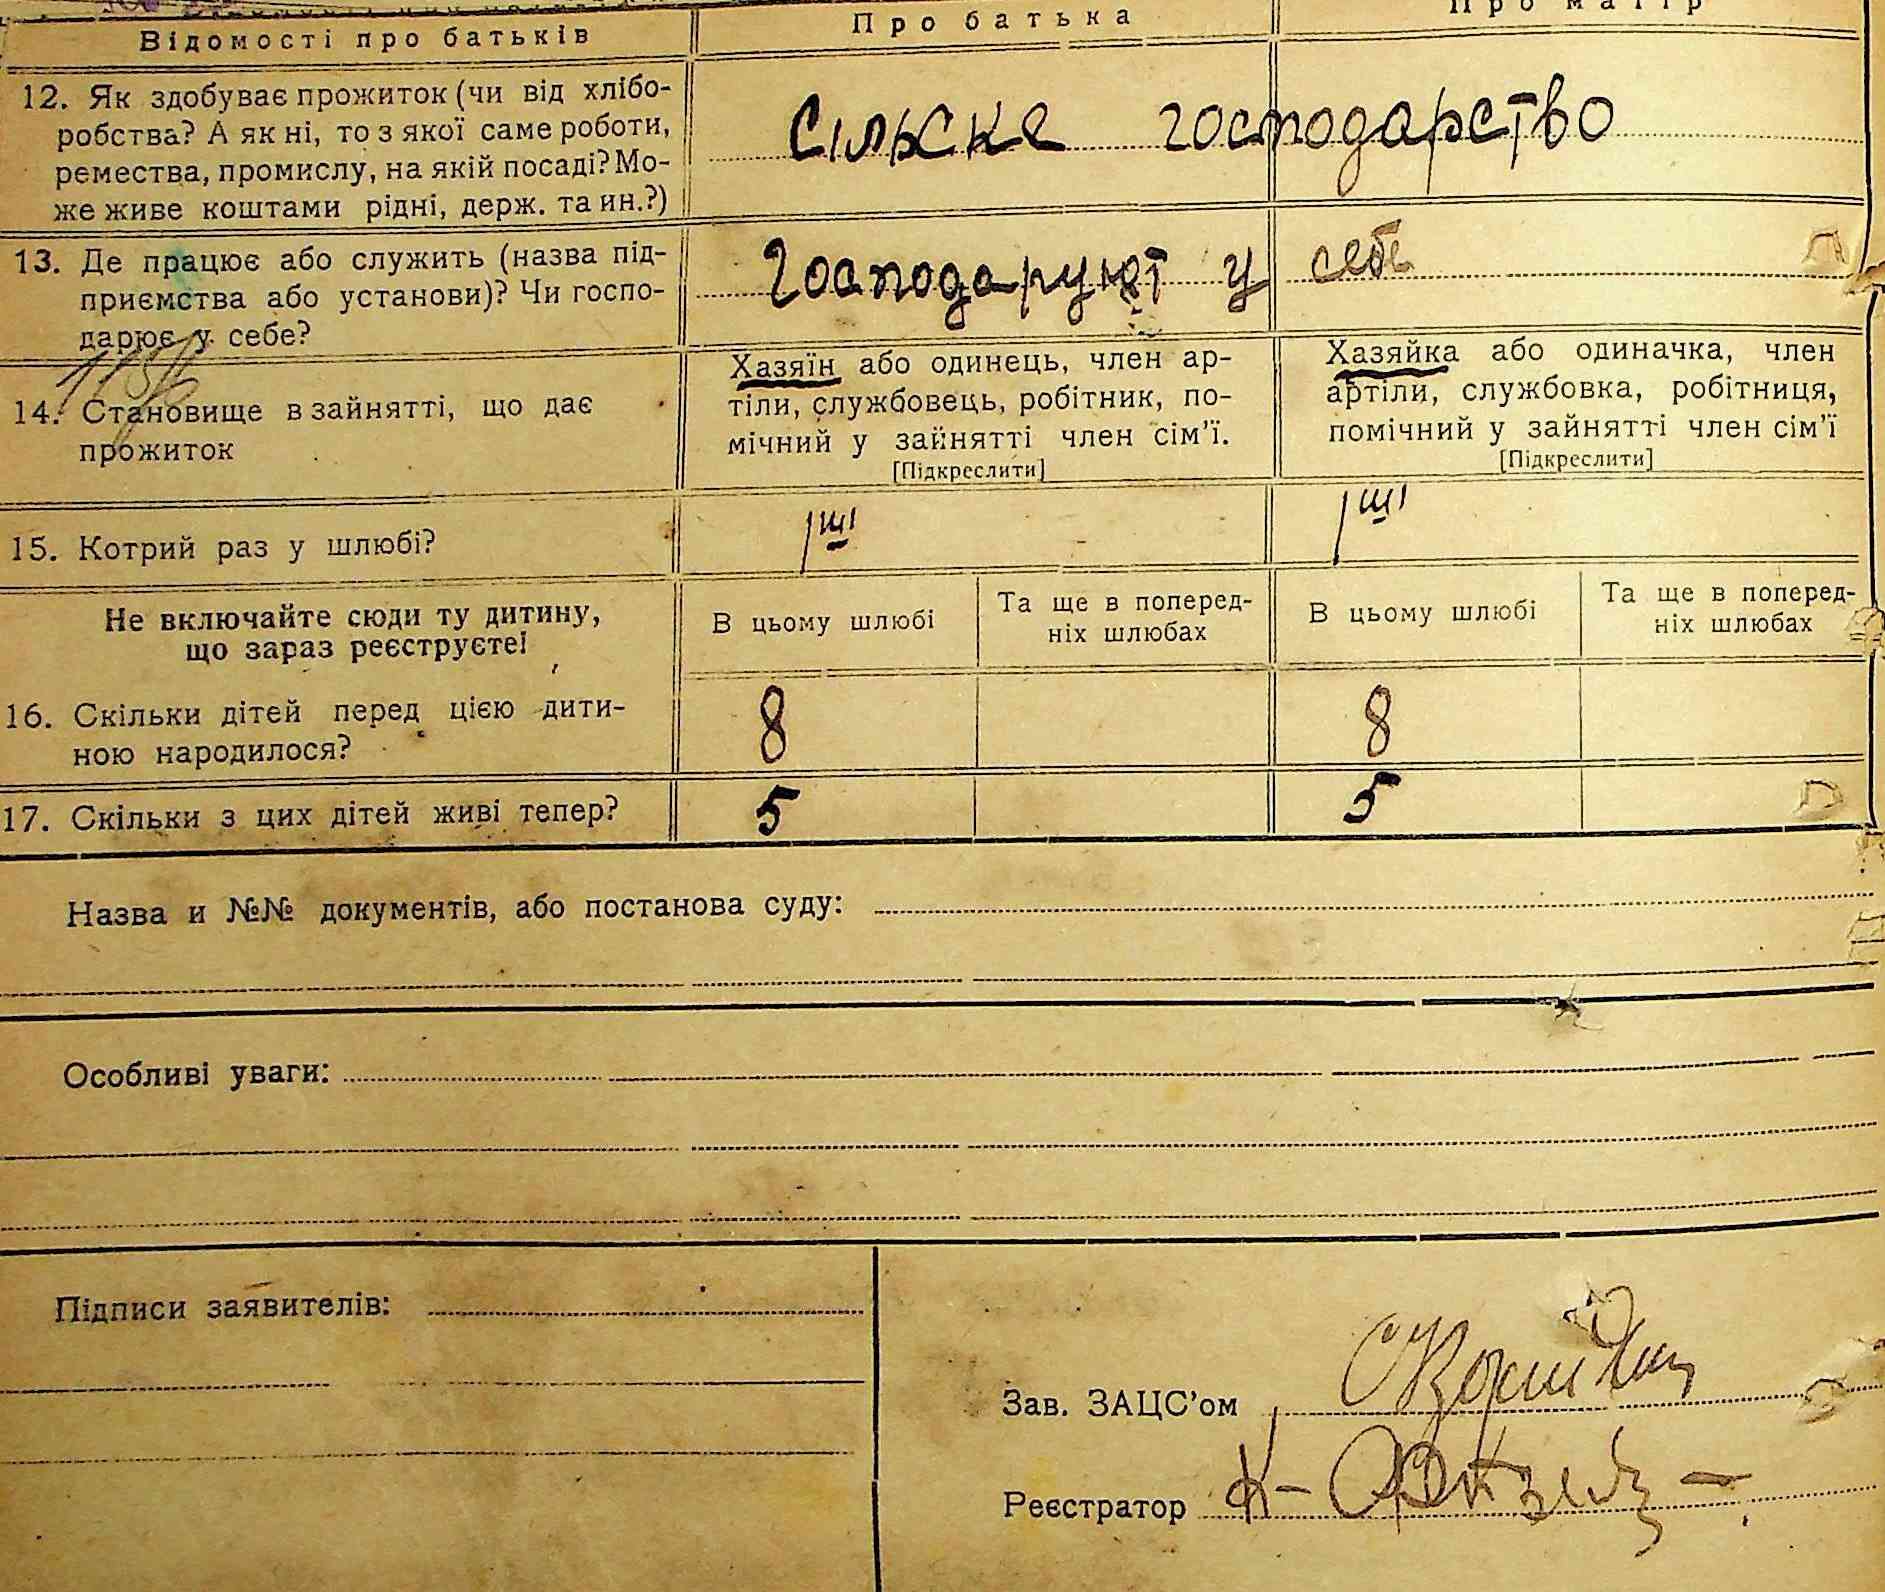 Відомості про батьків
Про батька
Про матір
12. Як здобуває прожиток (чи від хлібо-
робства? А як ні, то з якої саме роботи,
ремества, промислу, на якій посаді? Мо-
же живе коштами рідні, держ. та ин.?)
Сільске господарство
13. Де працює або служить (назва під-
приємства або установи)? Чи госпо-
дарює у себе?
Господарують у себе
14. Становище в зайнятті, що дає
прожиток
Хазяїн або одинець, член ар-
тіли, службовець, робітник, по-
мічний у зайнятті член сім'ї.
[Підкреслити]
Хазяйка або одиначка, член
артіли, службовка, робітниця,
помічний у зайнятті член сім'ї
[Підкреслити]
15. Котрий раз у шлюбі?
1ші
1ші
Не включайте сюди ту дитину,
що зараз реєструєте!
В цьому шлюбі
Та ще в поперед-
ніх шлюбах
В цьому шлюбі
Та ще в поперед-
ніх шлюбах
16. Скільки дітей перед цією дити-
ною народилося?
8
8
17. Скільки з цих дітей живі тепер?
5
5
Назва и №№ документів, або постанова суду:
Особливі уваги:
Підписи заявителів:
Зав. ЗАЦС'ом
Реєстратор